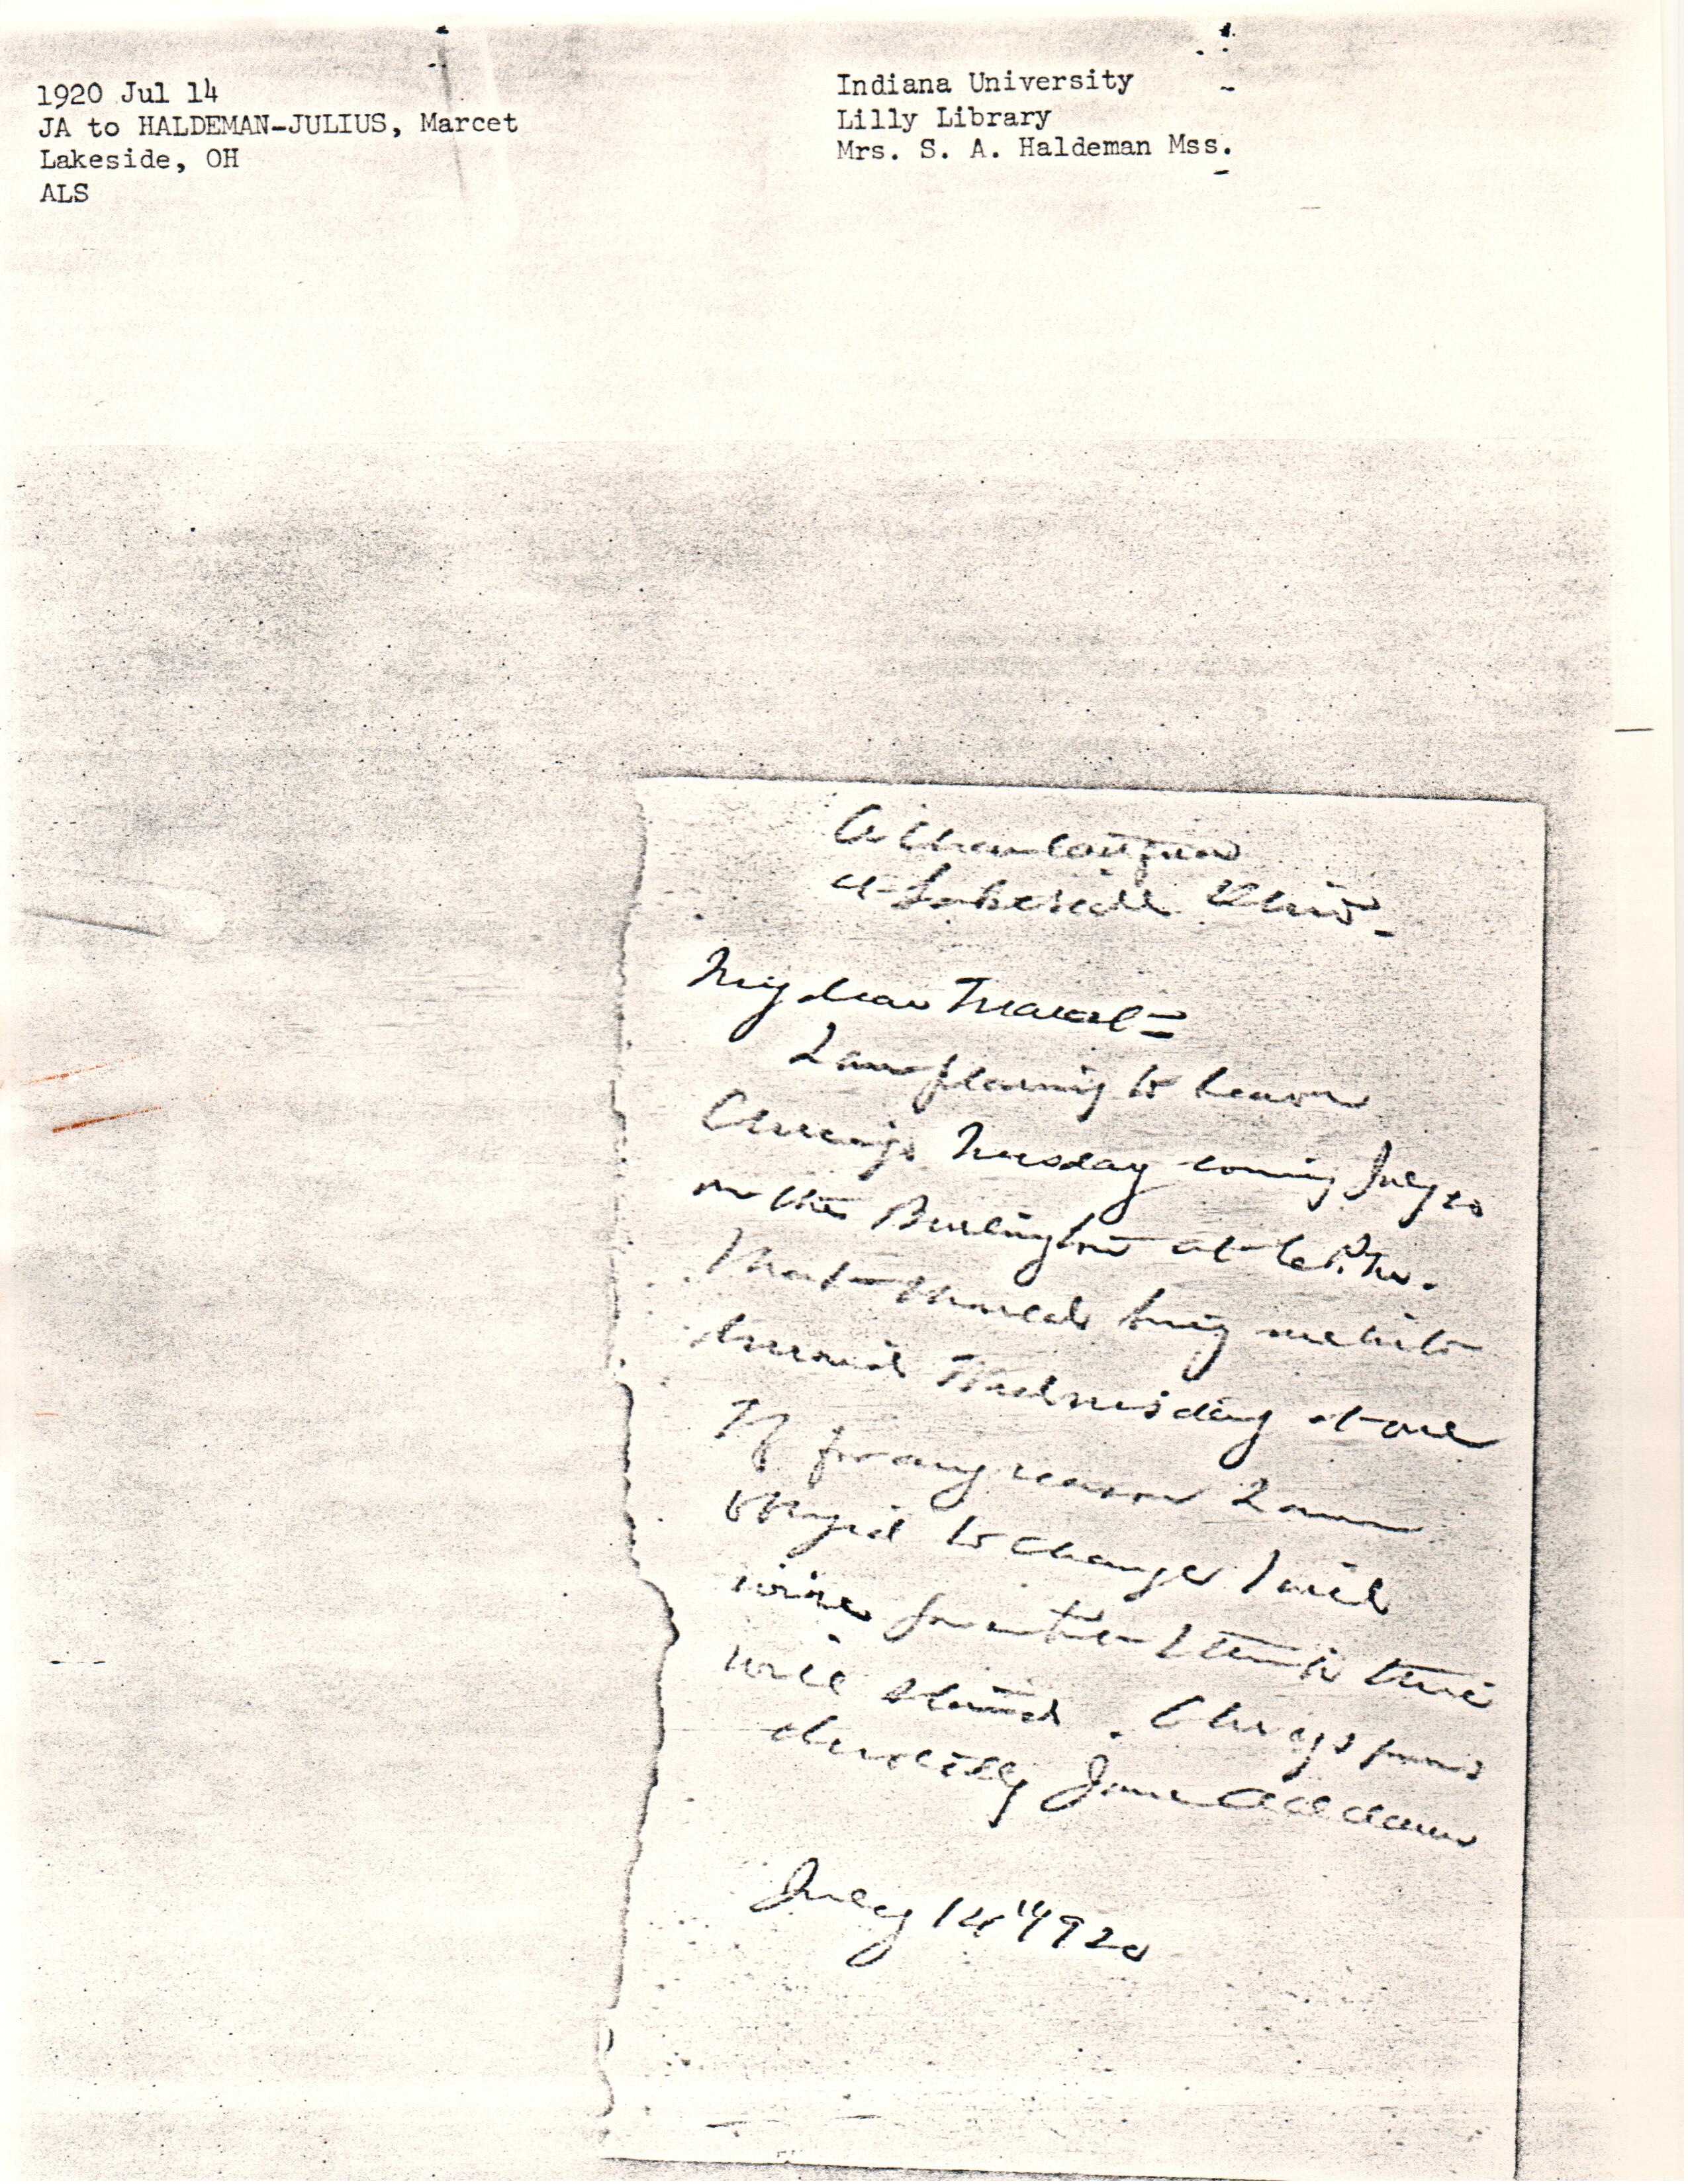 1920 Jul 14
JA to HALDEMAN-JULIUS, Marcet
Lakeside, OH
ALS
Indiana University
Lilly Library
Mrs. S. A. Haldeman Mss.
A Chautauqua
at Lakeside Ohio -
My dear Marcet =
I am planning to leave
Chicago Tuesday coming July 20
on the Burlington at 6 P.M.
That should bring me into
Wednesday at one
If for any reason I am
obliged to change I will
wire further I think this
will stand. Always yours
devotedly Jane Addams
July 14" 1920